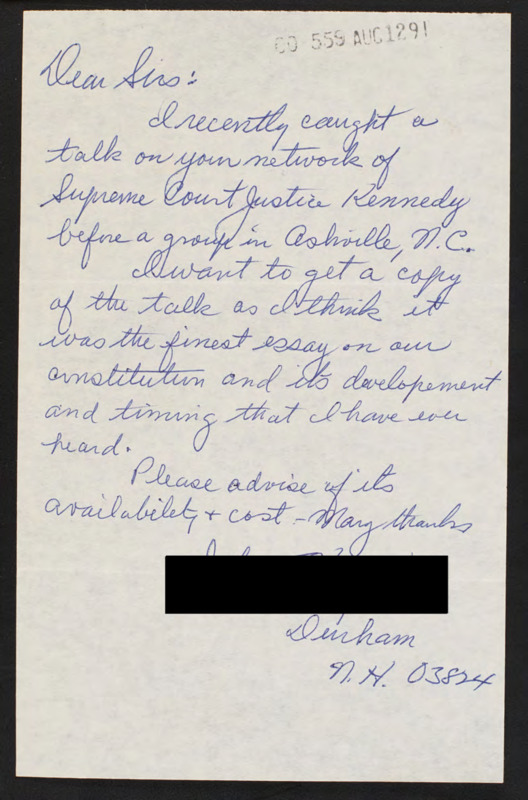 CO 559 AUG 12 91
Dear Sirs:
I recently caught a
talk on your network of
Supreme Court Justice Kennedy
before a group in Ashville, N.C.
I want to get a copy
of the talk as I think it
was the finest essay on our
constitution and its developement
and timing that I have ever
heard.
Please advise of its
availability + cost - Many thanks
Durham
N.H. 03824